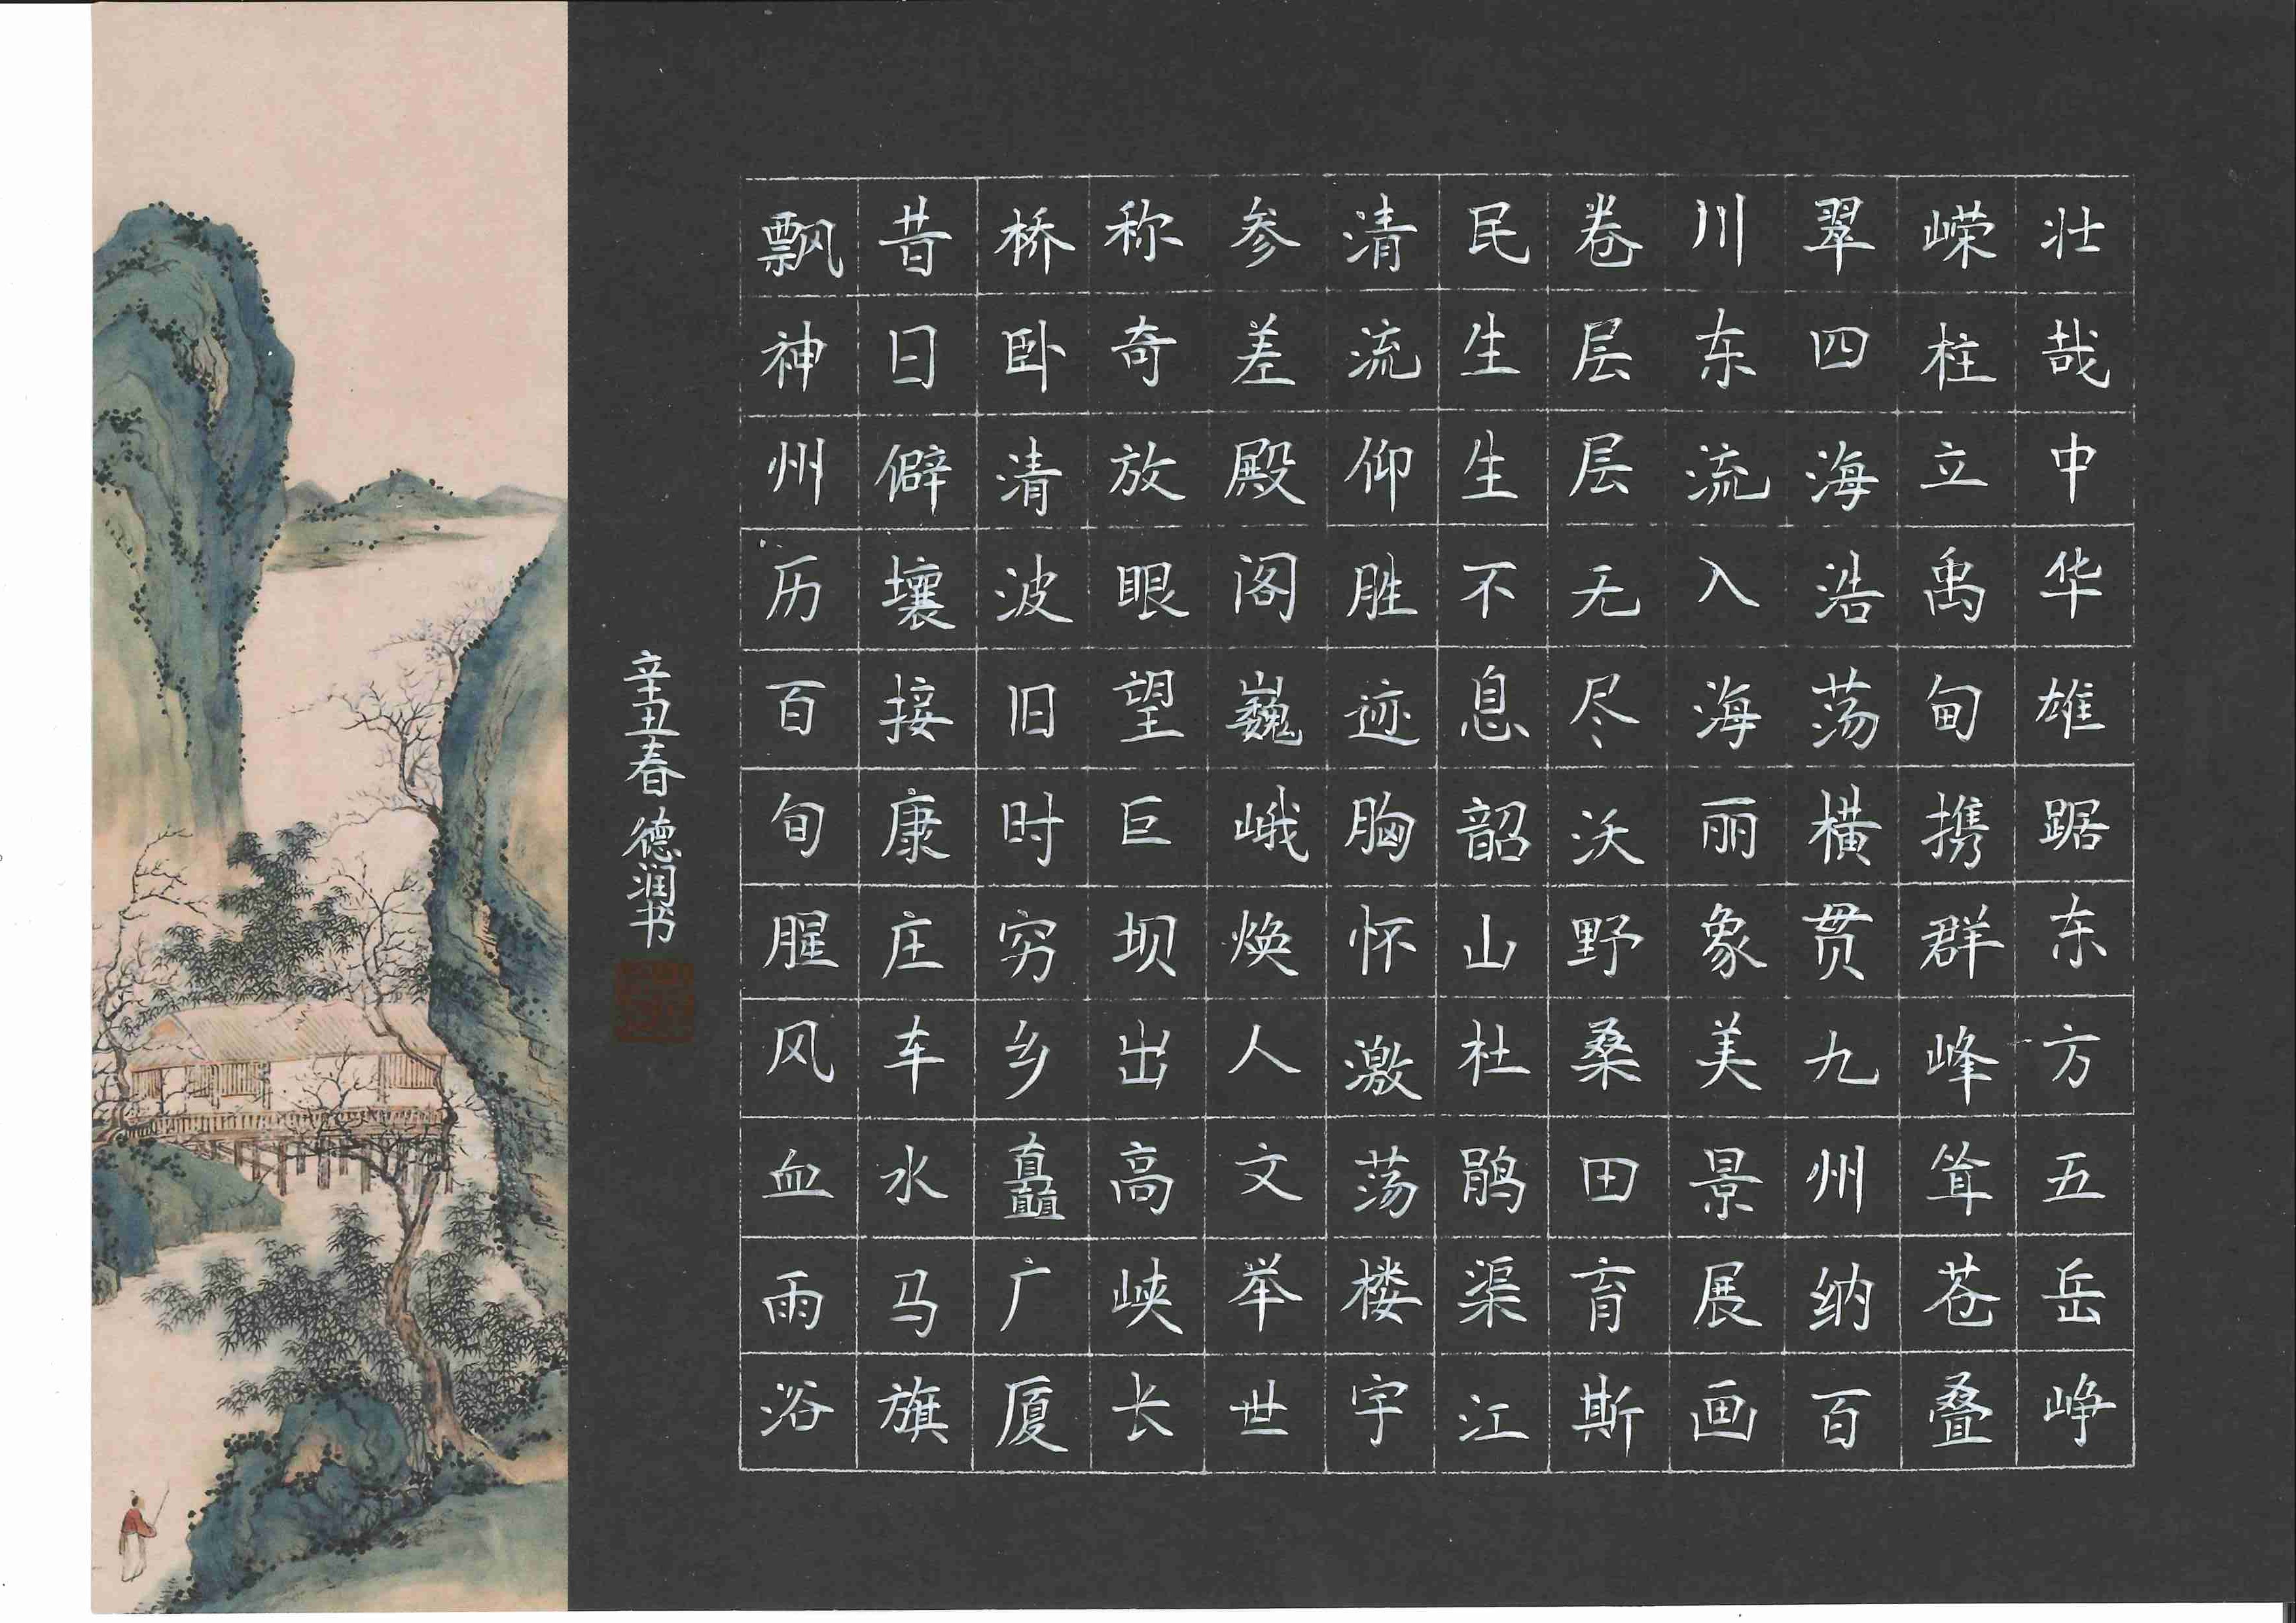 壮哉中华雄踞东方五岳峥
嵘柱立禹甸携群峰耸苍叠
翠四海浩荡横贯九州纳百
川东流入海丽象美景展画
卷层层无尽沃野桑田育斯
民生生不息韶山杜鹃渠江
清流仰胜迹胸怀激荡楼宇
参差殿阁巍峨焕人文举世
称奇放眼望巨坝出高峡长
桥卧清波旧时穷乡矗广厦
昔日僻壤接康庄车水马旗
飘神州历百旬腥风血雨浴
辛丑春 德润书